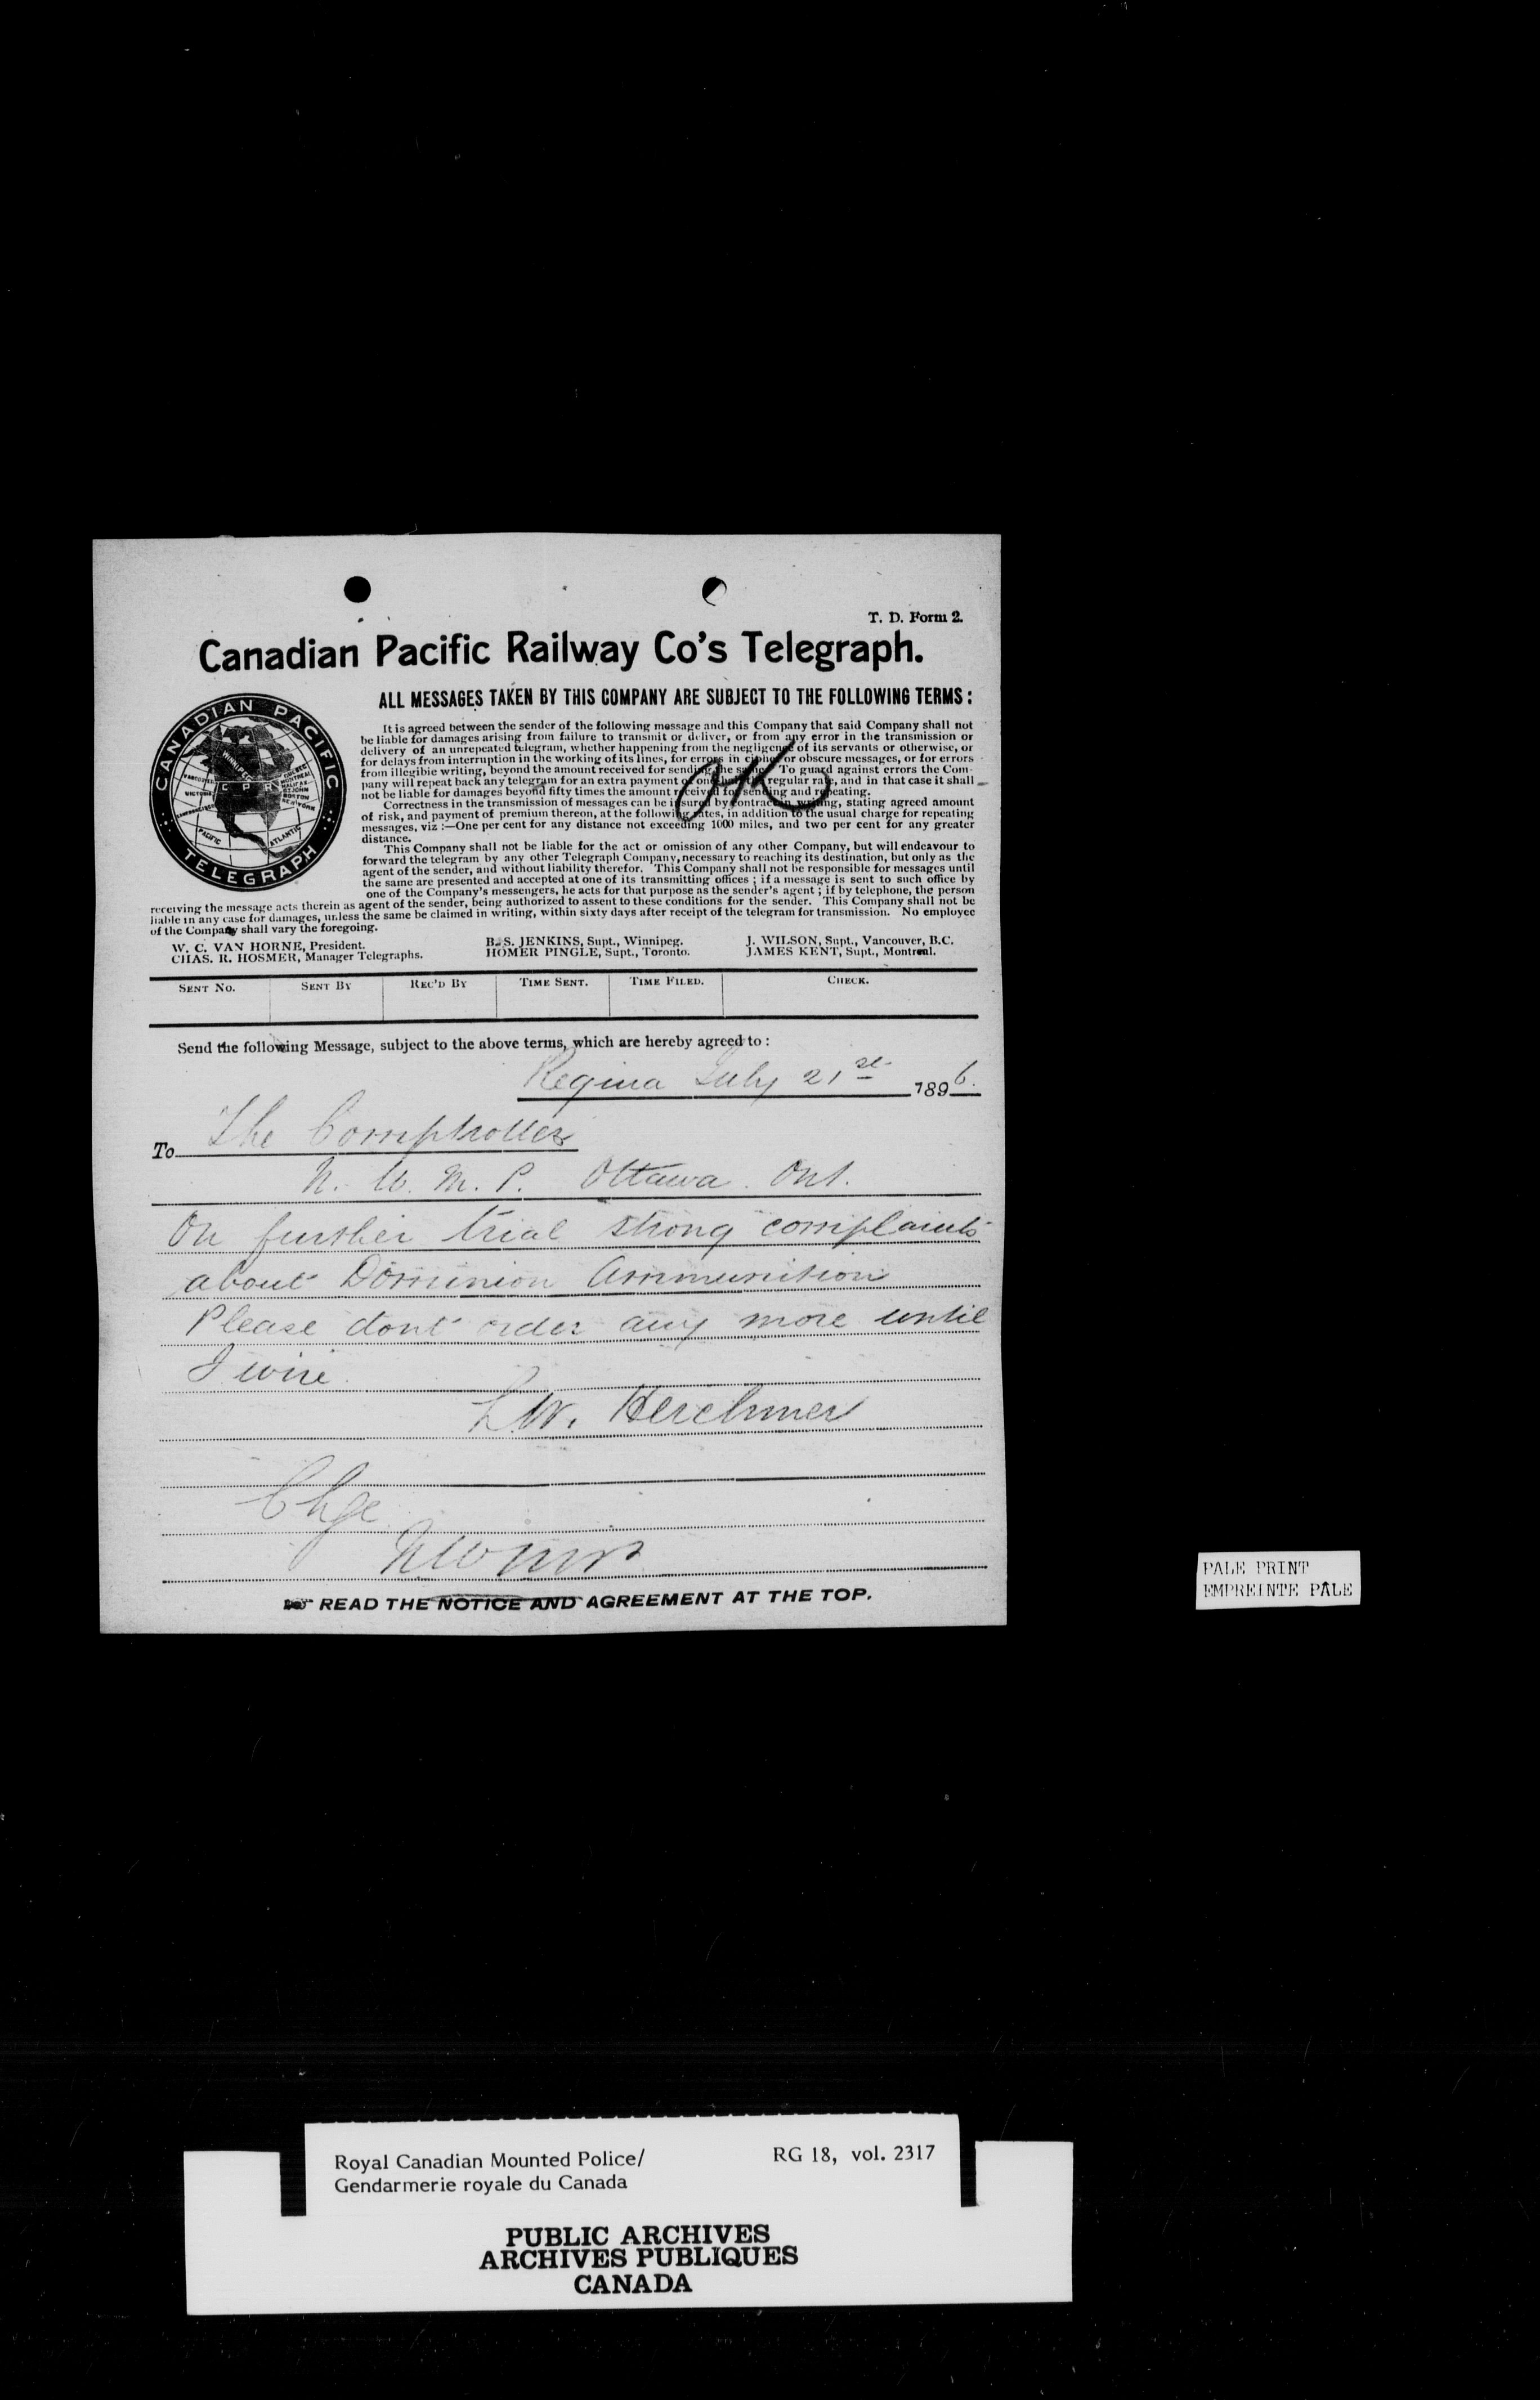 T. D. Form 2.
Canadian Pacific Railway Co's Telegraph.
ALL MESSAGES TAKEN BY THIS COMPANY ARE SUBJECT TO THE FOLLOWING TERMS:
CANADIAN PACIFIC
TELEGRAPH
WINNIPEG
C P R
PACIFIC
ATLANTIC
It is agreed between the sender of the following message and this Company that said Company shall not
be liable for damages arising from failure to transmit or deliver, or from any error in the transmission or
delivery of an unrepeated telegram, whether happening from the negligence of its servants or otherwise, or
for delays from interruption in the working of its lines, for errors in cipher or obscure messages, or for errors
from illegible writing, beyond the amount received for sending the same. To guard against errors the Com-
pany will repeat back any telegram for an extra payment of one-half the regular rate, and in that case it shall
not be liable for damages beyond fifty times the amount received for sending and repeating.
Correctness in the transmission of messages can be insured by contract in writing, stating agreed amount
of risk, and payment of premium thereon, at the following rates, in addition to the usual charge for repeating
messages, viz :—One per cent for any distance not exceeding 1000 miles, and two per cent for any greater
distance.
This Company shall not be liable for the act or omission of any other Company, but will endeavour to
forward the telegram by any other Telegraph Company, necessary to reaching its destination, but only as the
agent of the sender, and without liability therefor. This Company shall not be responsible for messages until
the same are presented and accepted at one of its transmitting offices ; if a message is sent to such office by
one of the Company's messengers, he acts for that purpose as the sender's agent ; if by telephone, the person
receiving the message acts therein as agent of the sender, being authorized to assent to these conditions for the sender. This Company shall not be
liable in any case for damages, unless the same be claimed in writing, within sixty days after receipt of the telegram for transmission. No employee
of the Company shall vary the foregoing.
W. C. VAN HORNE, President. B. S. JENKINS, Supt., Winnipeg. J. WILSON, Supt., Vancouver, B.C.
CHAS. R. HOSMER, Manager Telegraphs. HOMER PINGLE, Supt., Toronto. JAMES KENT, Supt., Montreal.
SENT NO. SENT BY REC'D BY TIME SENT. TIME FILED. CHECK.
Send the following Message, subject to the above terms, which are hereby agreed to :
Regina July 21st 1896.
To The Comptroller
N. W. M. P. Ottawa. Ont.
On further trial strong complaints
about Dominion Ammunition
Please dont order any more until
I wire.
L.W. Herchmer
Chge
NWMP
READ THE NOTICE AND AGREEMENT AT THE TOP.
PALE PRINT
EMPREINTE PALE
Royal Canadian Mounted Police/ RG 18, vol. 2317
Gendarmerie royale du Canada
PUBLIC ARCHIVES
ARCHIVES PUBLIQUES
CANADA